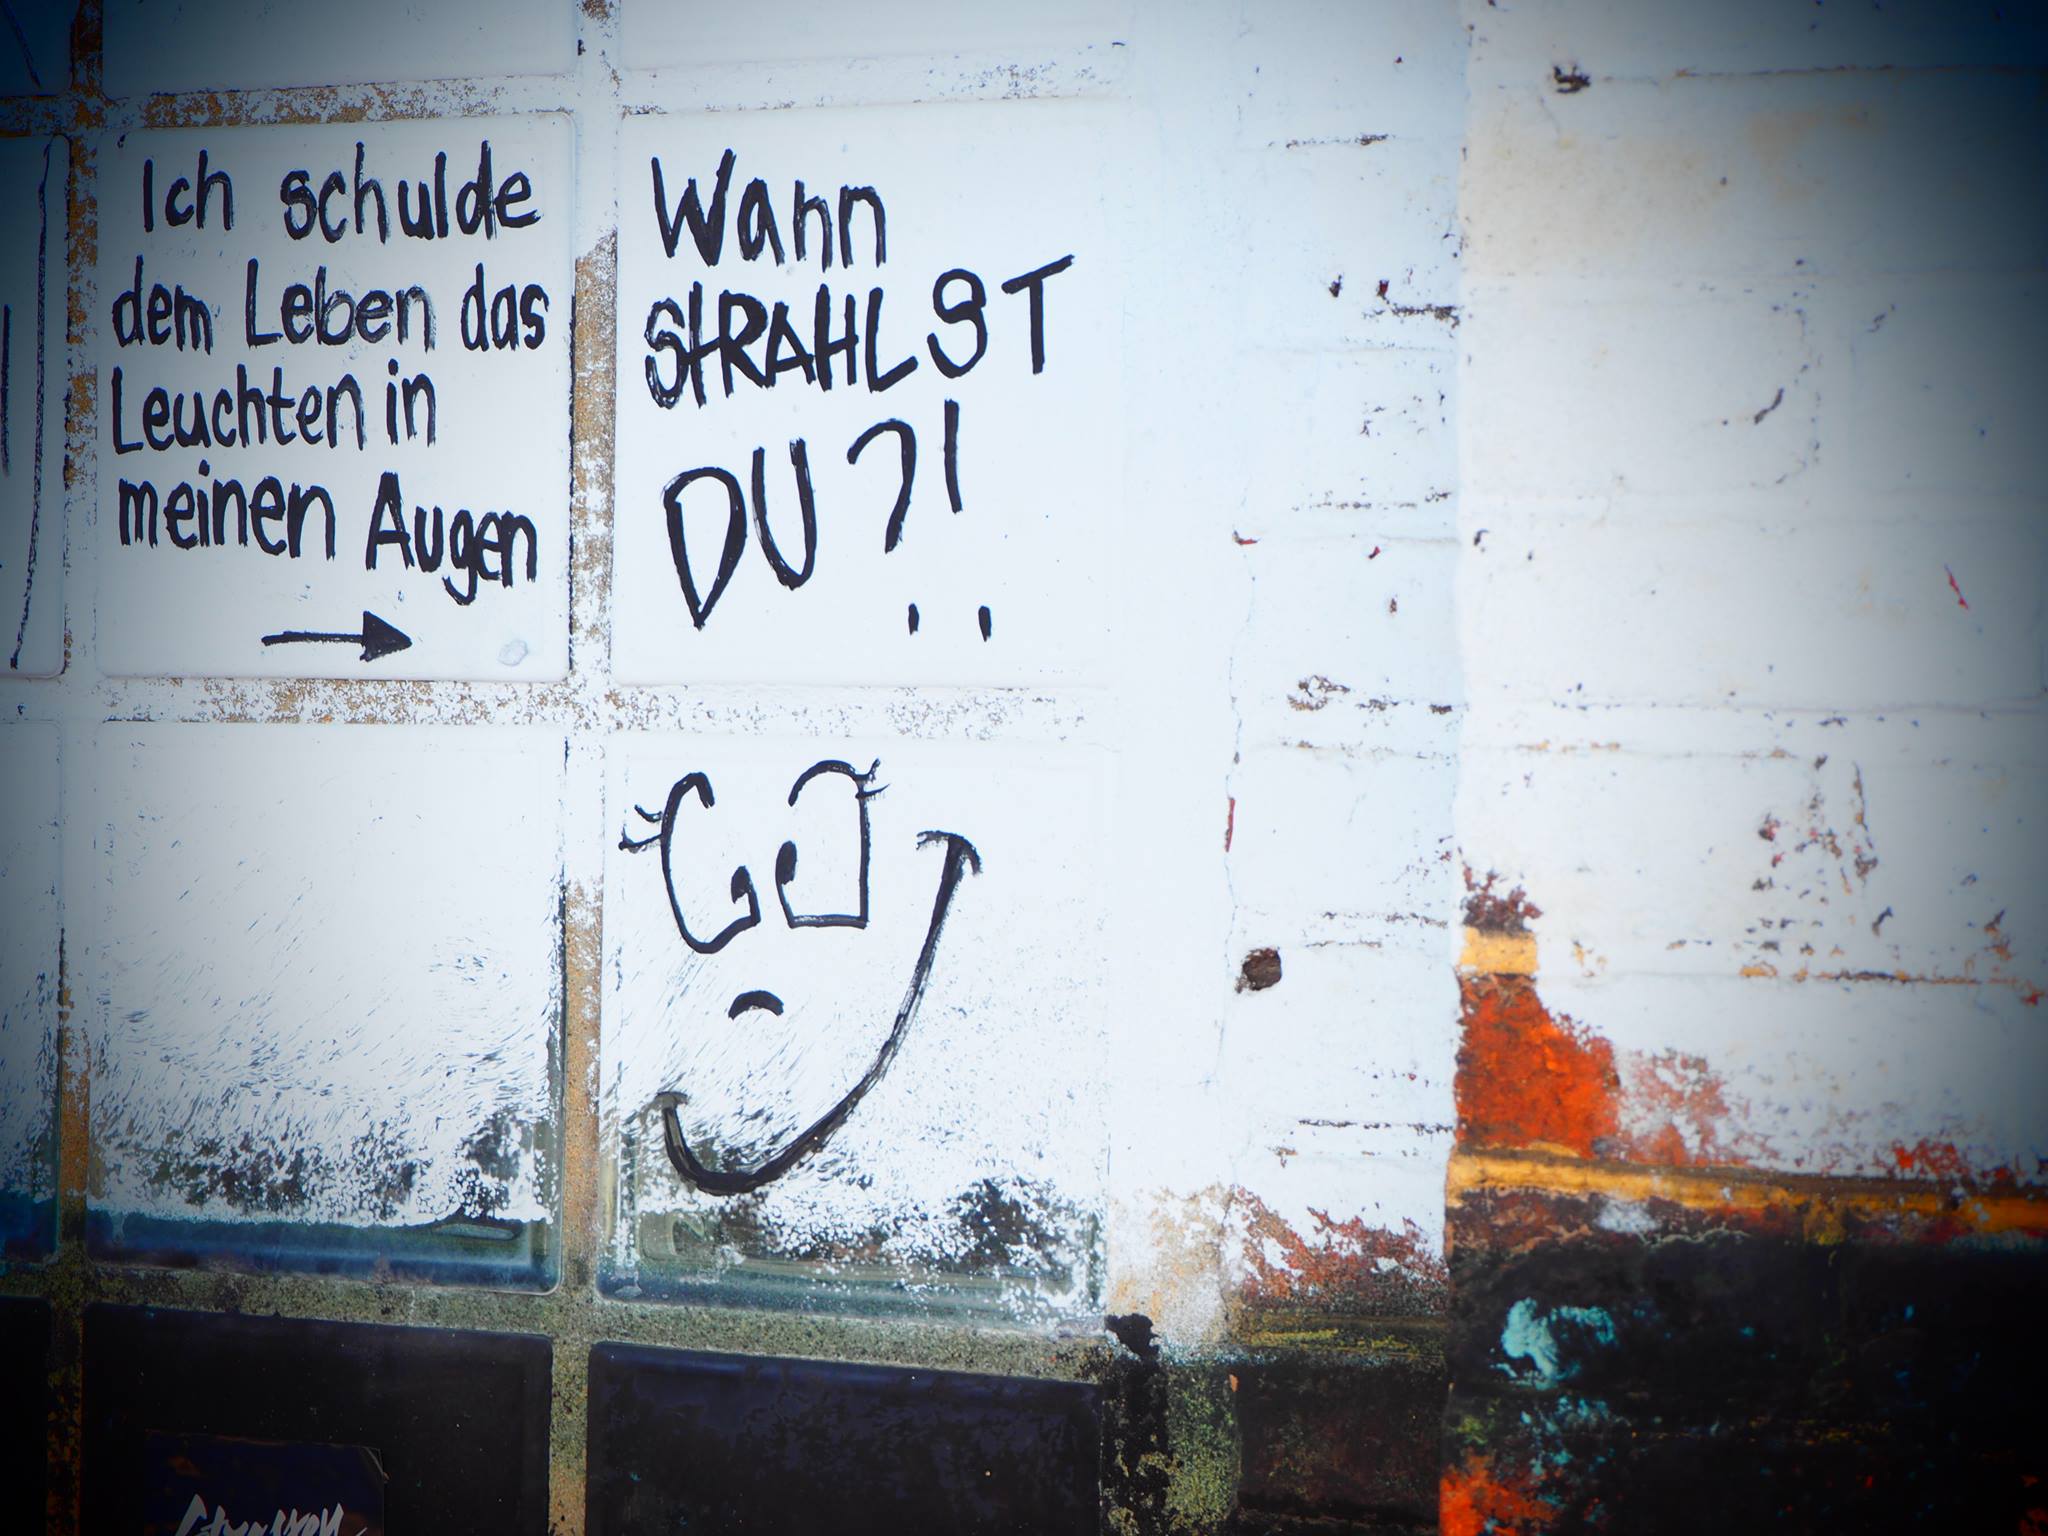 Ich schulde
dem Leben das
Leuchten in
meinen Augen
Wann
StRAHLST
DU?!